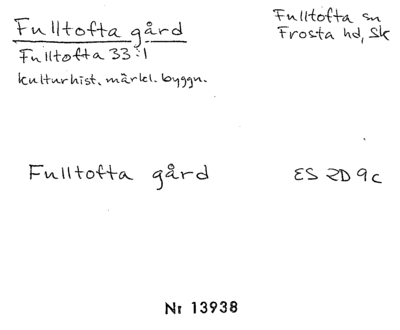 Fulltofta gård
Fulltofta 33:1
kulturhist. märkl. byggn.
Fulltofta sn
Frosta hd, Sk
Fulltofta gård
ES 2D 9c
Nr 13938